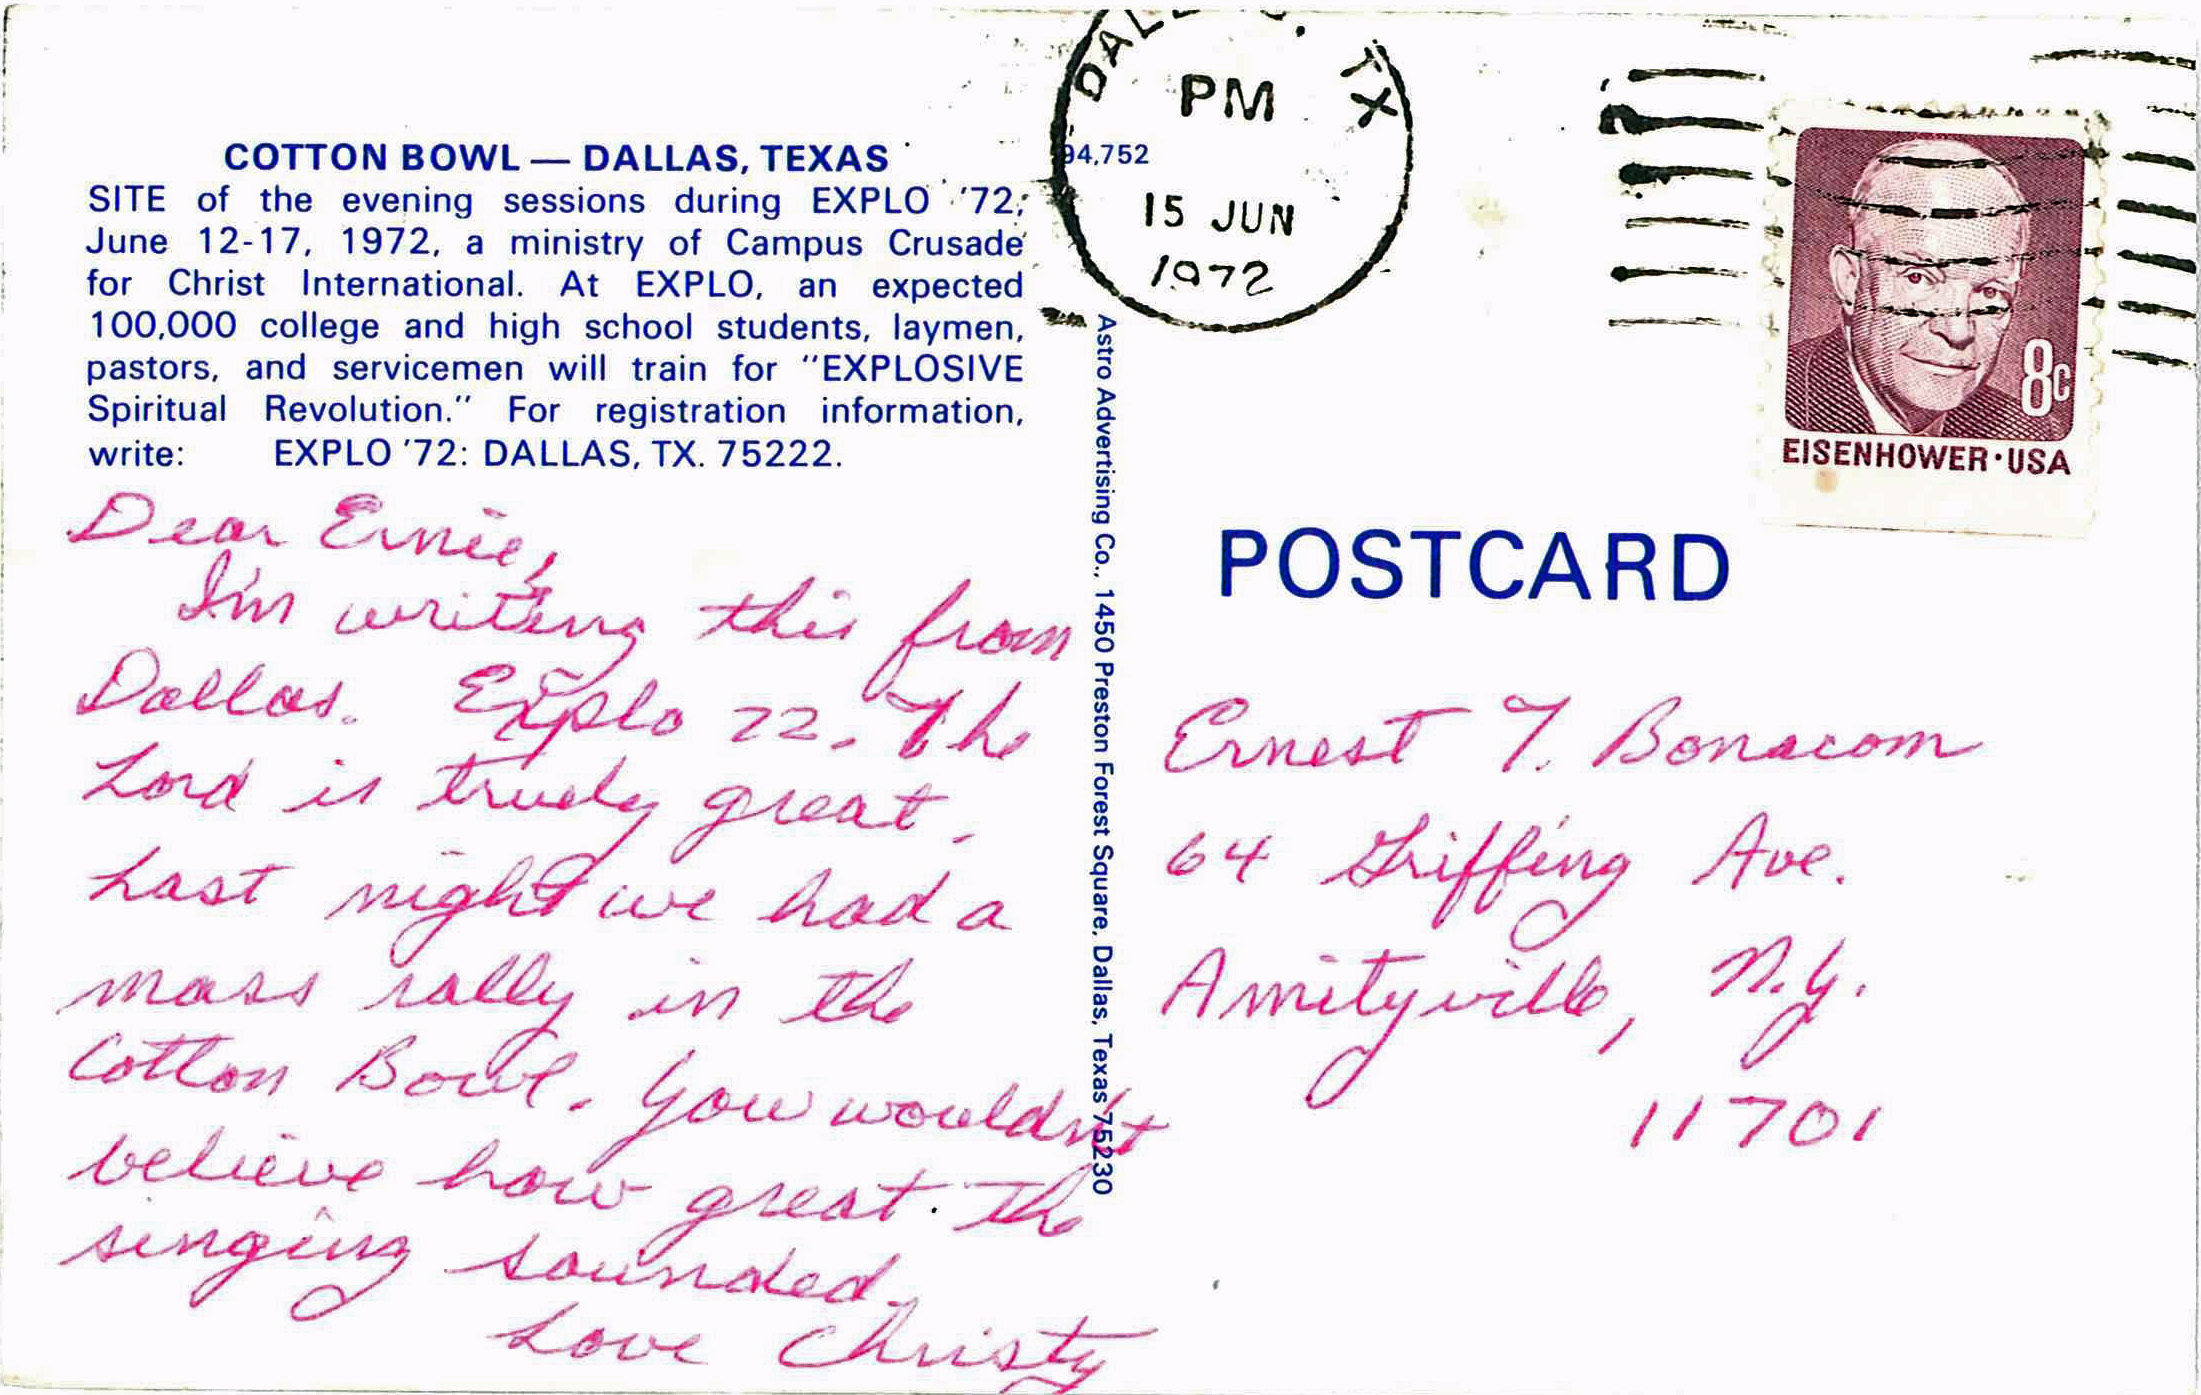 COTTON BOWL — DALLAS, TEXAS
SITE of the evening sessions during EXPLO '72,
June 12-17, 1972, a ministry of Campus Crusade
for Christ International. At EXPLO, an expected
100,000 college and high school students, laymen,
pastors, and servicemen will train for "EXPLOSIVE
Spiritual Revolution." For registration information,
write: EXPLO '72: DALLAS, TX. 75222.
Dear Ernie,
I'm writing this from
Dallas. Explo 72. The
Lord is truely great.
Last night we had a
mass rally in the
Cotton Bowl. You wouldn't
believe how great the
singing sounded.
Love Christy
94,752
Astro Advertising Co., 1450 Preston Forest Square, Dallas, Texas 75230
DALLAS, TX
PM
15 JUN
1972
8c
EISENHOWER·USA
POSTCARD
Ernest T. Bonacom
64 Griffing Ave.
Amityville, N.Y.
11701